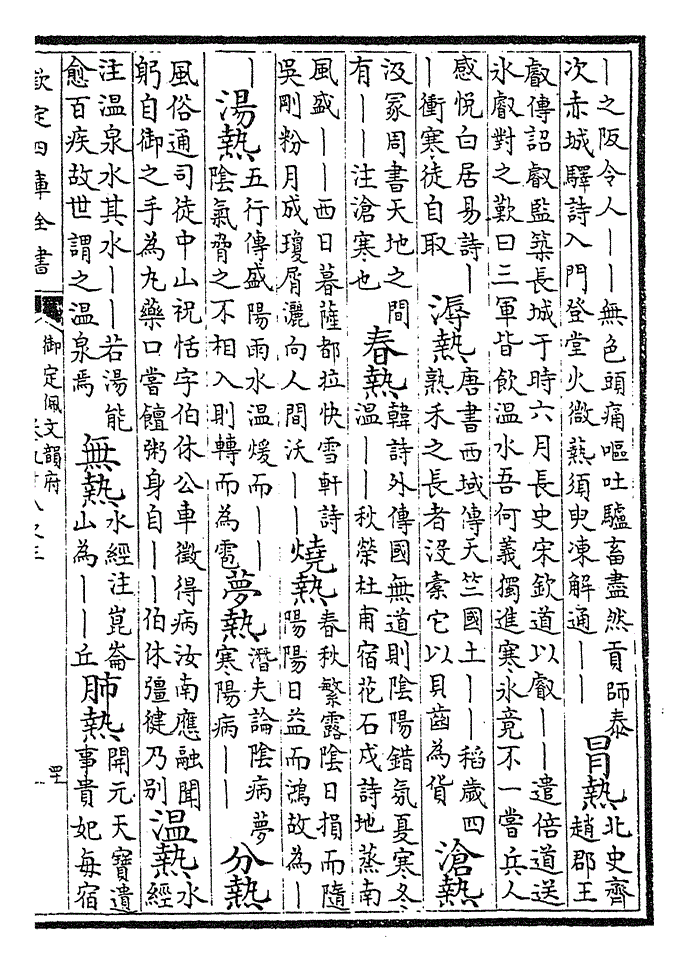 ｜之阪令人｜｜｜無色頭痛嘔吐驢畜盡然貢師泰
次赤城驛詩入門登堂火微爇須臾凍解通｜｜
冒熱
北史齊
趙郡王
叡傳詔叡監築長城于時六月長史宋欽道以叡｜｜遣倍道送
氷叡對之歎曰三軍皆飲温水吾何義獨進寒氷竟不一嘗兵人
感悦白居易詩｜
｜衝寒徒自取
溽熱
唐書西域傳天竺國土｜｜稻歲四
熟禾之長者沒槖它以貝齒為貨
滄熱
汲冡周書天地之間
有｜｜注滄寒也
春熱
韓詩外傳國無道則陰陽錯氛夏寒冬
温｜｜秋榮杜甫宿花石戍詩地蒸南
風盛｜｜西日暮薩都拉快雪軒詩
吳剛粉月成瓊屑灑向人間沃｜｜
燒熱
春秋繁露陰日損而隨
陽陽日益而鴻故為｜
｜
湯熱
五行傳盛陽雨水温煖而｜｜
陰氣脅之不相入則轉而為雹
夢熱
潛夫論陰病夢
寒陽病｜｜
分熱
風俗通司徒中山祝恬字伯休公車徵得病汝南應融聞
躬自御之手為丸藥口嘗饘粥身自｜｜伯休彊健乃别
温熱
水
經
注温泉水其水｜｜若湯能
愈百疾故世謂之温泉焉
無熱
水經注崑崙
山為｜｜丘
肺熱
開元天寶遺
事貴妃每宿
欽定四庫全書
御定佩文韻府